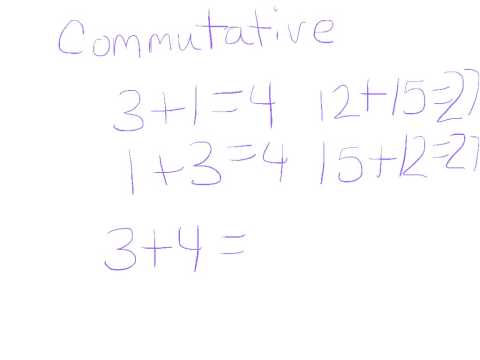 Commutative
3+1=4 12+15=27
1+3=4 15+12=27
3+4=